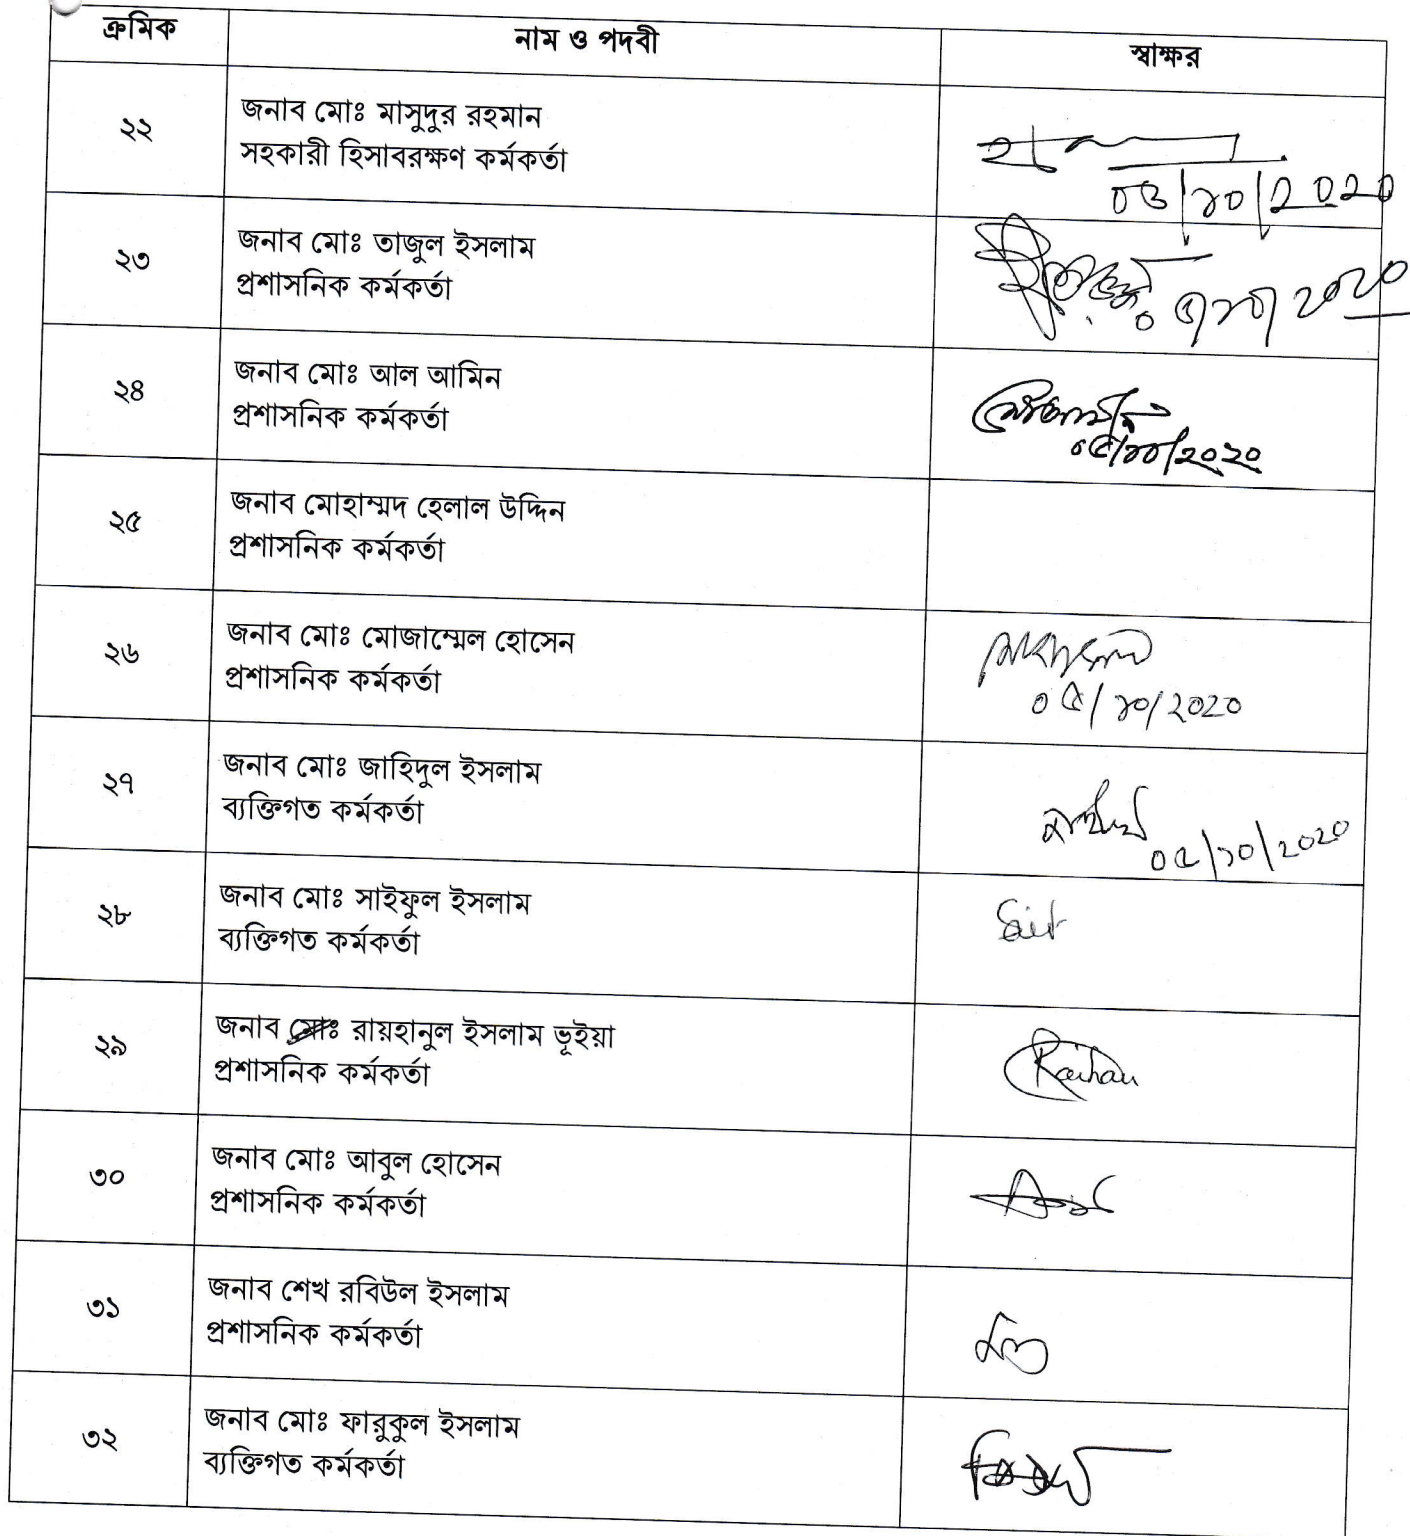 ক্রমিক নাম ও পদবী স্বাক্ষর
২২ জনাব মোঃ মাসুদুর রহমান
সহকারী হিসাবরক্ষণ কর্মকর্তা
০৫/১০/২০২০
২৩ জনাব মোঃ তাজুল ইসলাম
প্রশাসনিক কর্মকর্তা
০৫/১০/২০২০
২৪ জনাব মোঃ আল আমিন
প্রশাসনিক কর্মকর্তা
০৫/১০/২০২০
২৫ জনাব মোহাম্মদ হেলাল উদ্দিন
প্রশাসনিক কর্মকর্তা
২৬ জনাব মোঃ মোজাম্মেল হোসেন
প্রশাসনিক কর্মকর্তা
০৫/১০/২০২০
২৭ জনাব মোঃ জাহিদুল ইসলাম
ব্যক্তিগত কর্মকর্তা
০৫/১০/২০২০
২৮ জনাব মোঃ সাইফুল ইসলাম
ব্যক্তিগত কর্মকর্তা
২৯ জনাব মোঃ রায়হানুল ইসলাম ভূইয়া
প্রশাসনিক কর্মকর্তা
Raihan
৩০ জনাব মোঃ আবুল হোসেন
প্রশাসনিক কর্মকর্তা
৩১ জনাব শেখ রবিউল ইসলাম
প্রশাসনিক কর্মকর্তা
৩২ জনাব মোঃ ফারুকুল ইসলাম
ব্যক্তিগত কর্মকর্তা